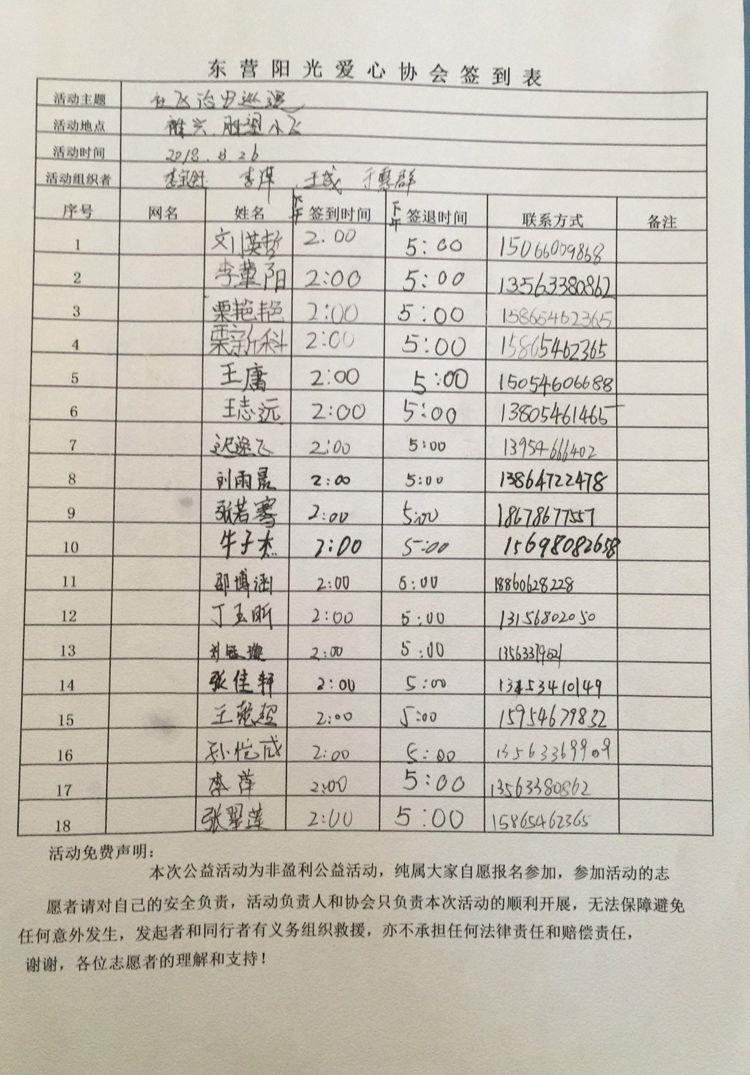 东营阳光爱心协会签到表
活动主题
活动地点 胜兴、胜望小飞
活动时间 2018.8.26
活动组织者 李萍 王威 于慧群
序号 网名 姓名 下午 签到时间 下午 签退时间 联系方式 备注
1 刘英哲 2:00 5:00 15066009868
2 李萱阳 2:00 5:00 13563380862
3 栗艳艳 2:00 5:00 15865462365
4 栗新科 2:00 5:00 15865462365
5 王庸 2:00 5:00 15054606688
6 王志远 2:00 5:00 13805461465
7 迟逸飞 2:00 5:00 13954666402
8 刘雨晨 2:00 5:00 13864722478
9 张若骞 2:00 5:00 18678677557
10 牛子杰 2:00 5:00 15698082638
11 邵博涵 2:00 5:00 18860628228
12 丁玉昕 2:00 5:00 13156802050
13 2:00 5:00
14 张佳轩 2:00 5:00
15 2:00 5:00 15954679832
16 孙恺成 2:00 5:00 13563369909
17 李萍 2:00 5:00 13563380862
18 张翠莲 2:00 5:00 15865462365
活动免费声明：
本次公益活动为非盈利公益活动，纯属大家自愿报名参加，参加活动的志
愿者请对自己的安全负责，活动负责人和协会只负责本次活动的顺利开展，无法保障避免
任何意外发生，发起者和同行者有义务组织救援，亦不承担任何法律责任和赔偿责任，
谢谢，各位志愿者的理解和支持！